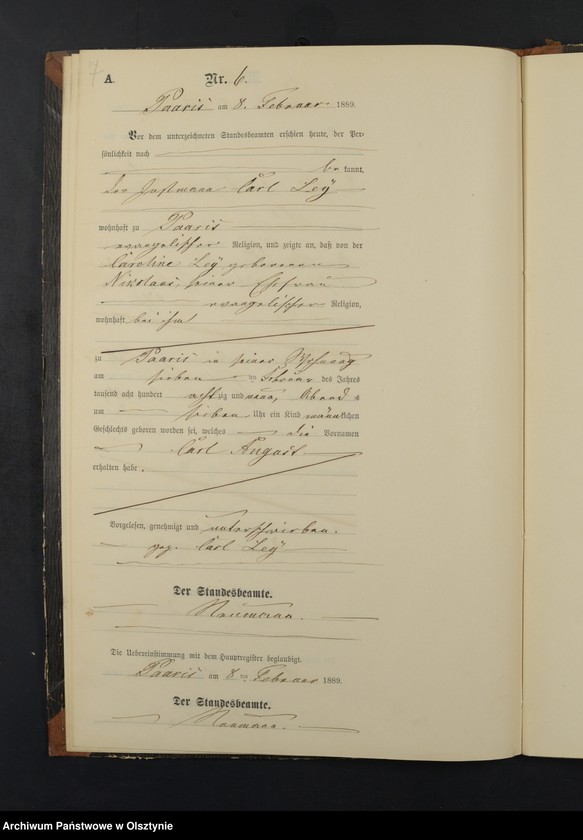 7
A. Nr. 6.
Paaris am 8. Februar 1889.
Vor dem unterzeichneten Standesbeamten erschien heute, der Per-
sönlichkeit nach
be kannt,
der Instmann Carl Ley
wohnhaft zu Paaris
evangelischer Religion, und zeigte an, daß von der
Caroline Ley geborenen
Nikolaus, seiner Ehefrau
evangelischer Religion,
wohnhaft bei ihm
zu Paaris in seiner Wohnung
am sieben ten Februar des Jahres
tausend acht hundert acht zig und neun, Abends
um sieben Uhr ein Kind männlichen
Geschlechts geboren worden sei, welches die Vornamen
Carl August
erhalten habe.
Vorgelesen, genehmigt und unterschrieben.
gez. Carl Ley
Der Standesbeamte.
Neumann.
Die Uebereinstimmung mit dem Hauptregister beglaubigt.
Paaris am 8 ten Februar 1889.
Der Standesbeamte.
Neumann.
Archiwum Państwowe w Olsztynie